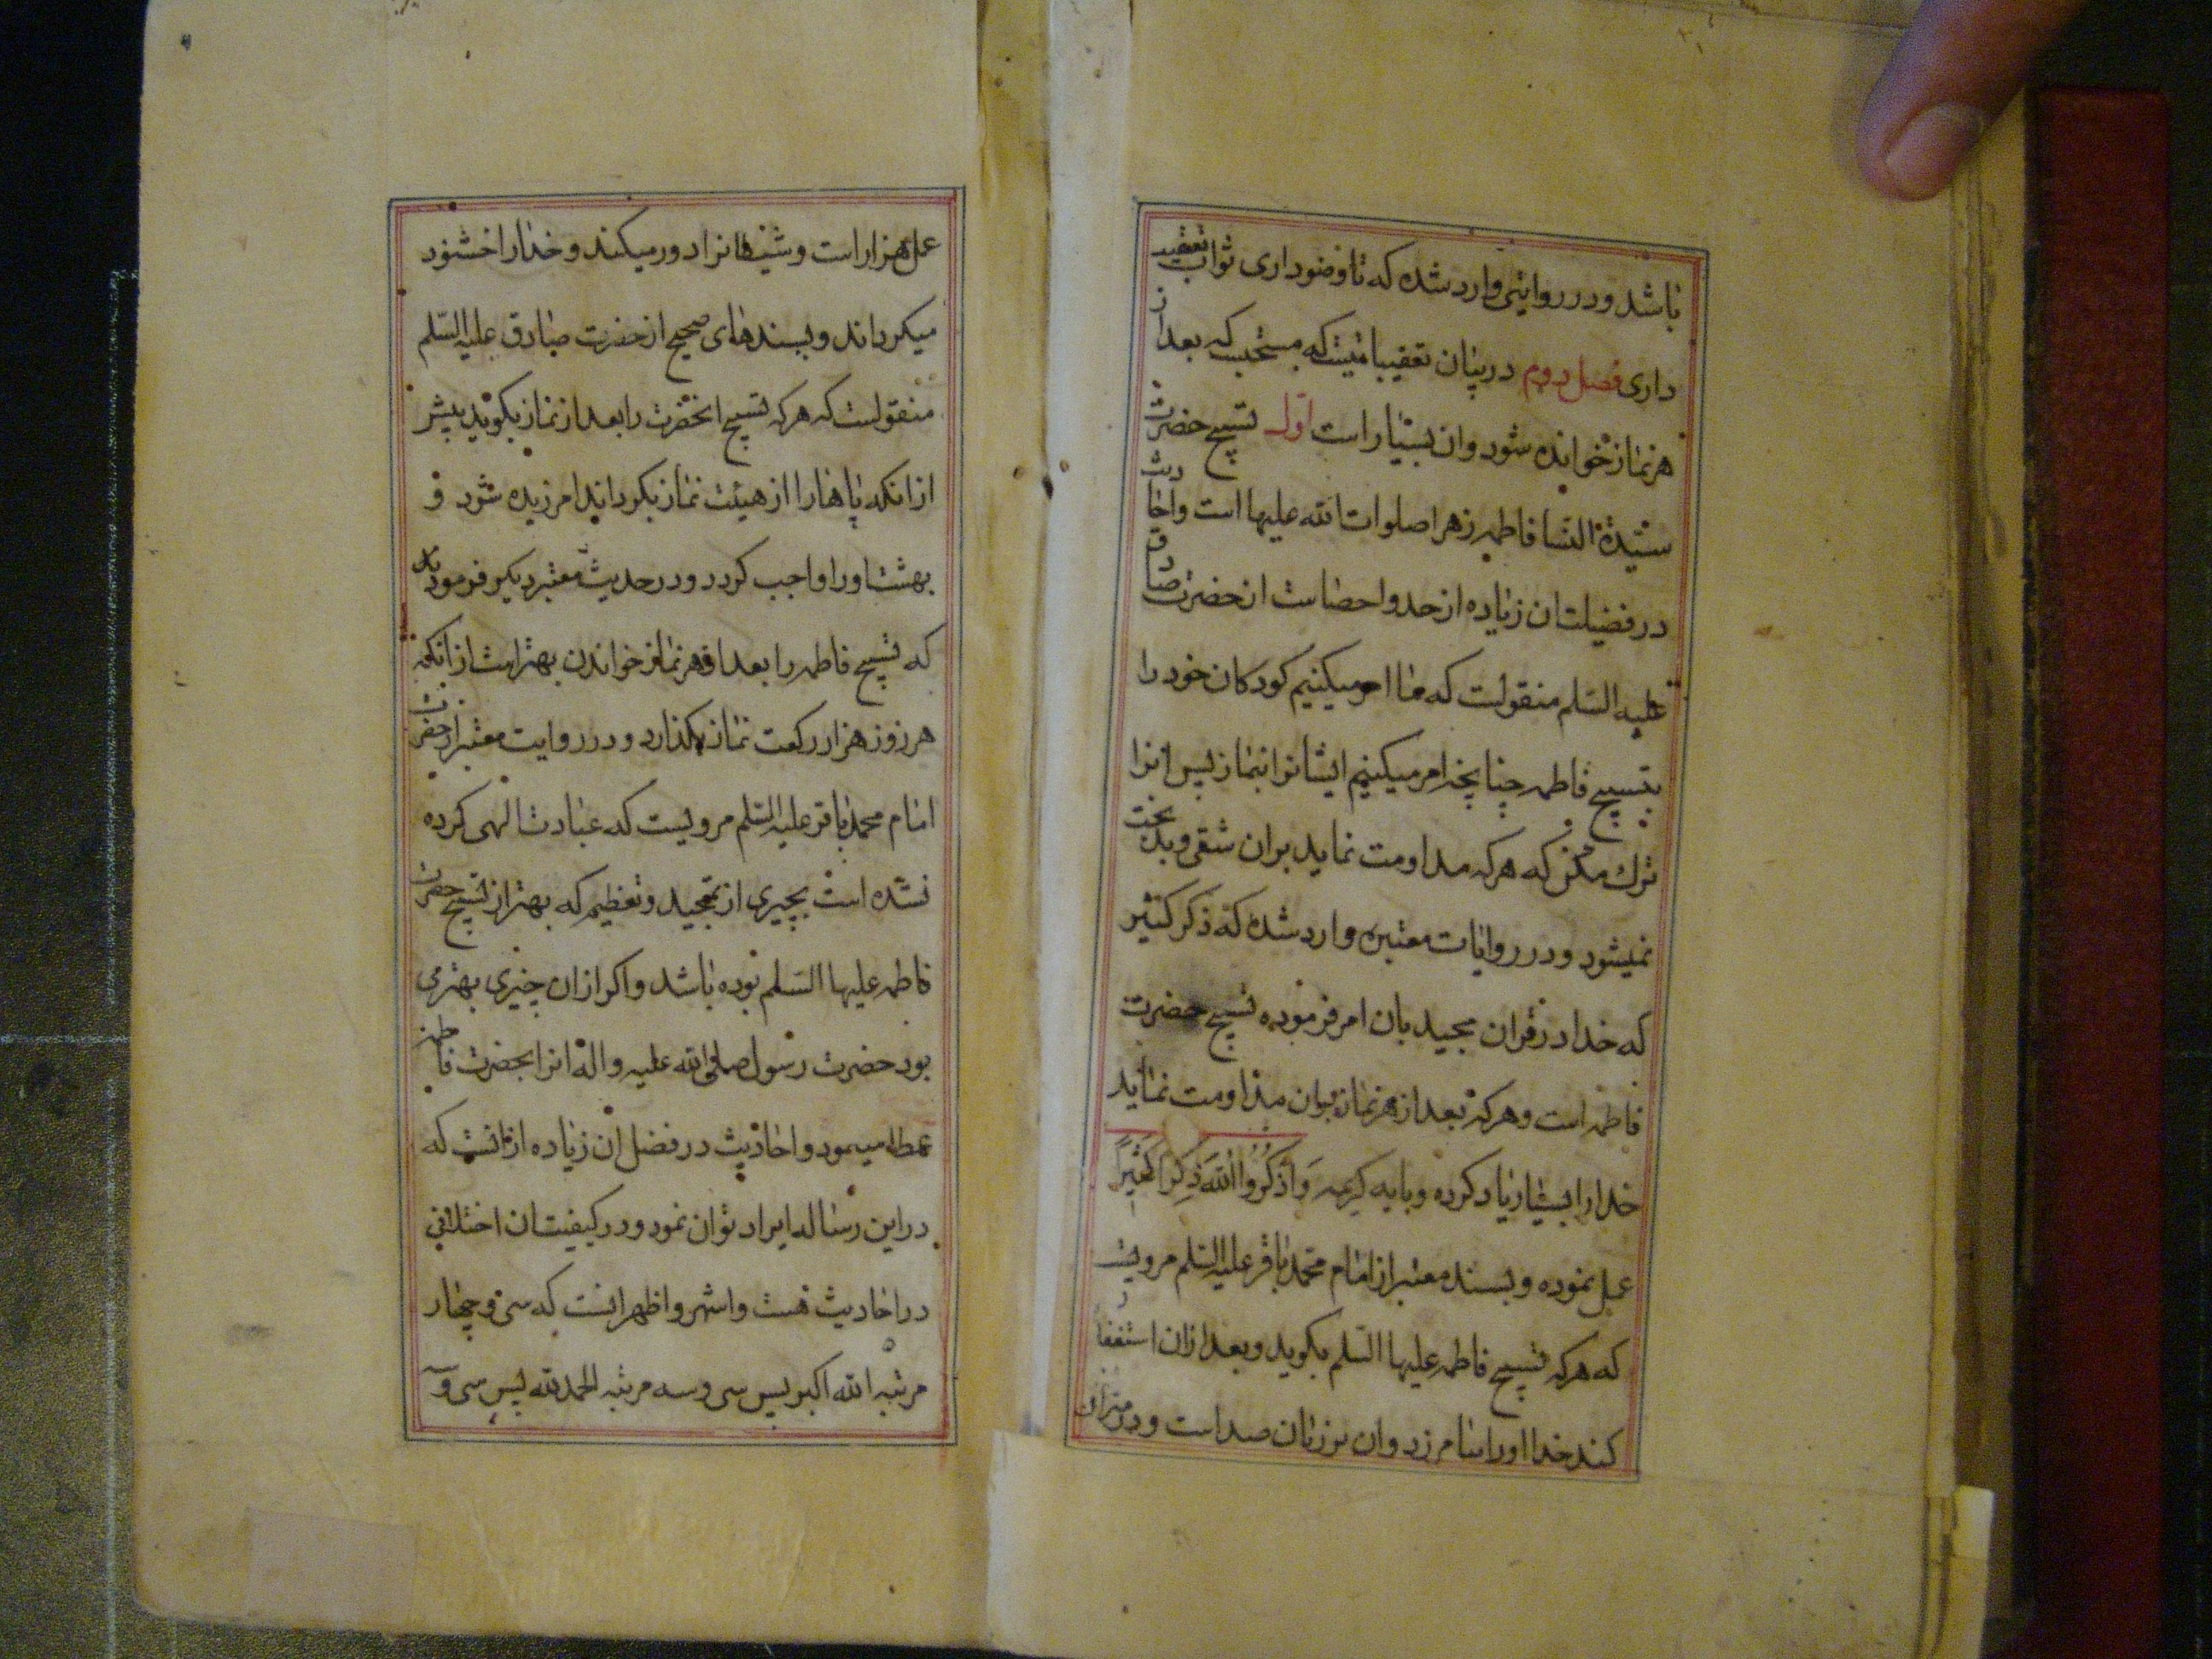 باشد و در روایتی وارد شده که تا وضو داری ثواب تعقیب
داری فصل دوم در بیان تعقیباتیست که مستحبست که بعد از
هر نماز خوانده شود و ان بسیار است اول تسبیح حضرت
سیدة النسا فاطمه زهرا صلوات الله علیها است و احادیث
در فضیلت ان زیاده از حد و احصاست از حضرت صادق
علیه السلم منقولست که ما امر میکنیم کودکان خود را
بتسبیح فاطمه چنانچه امر میکنیم ایشانرا بنماز پس انرا
ترك مکن که هرکه مداومت نماید بران شقی و بدبخت
نمیشود و در روایات معتبره وارد شده که ذکر کثیر
که خدا در قران مجید بان امر فرموده تسبیح حضرت
فاطمه است و هرکه بعد از هر نماز بران مداومت نماید
خدا را بسیار یاد کرده و بایه کریمه وَاذْكُرُوا اللّٰهَ ذِكْرًا كَثِيرًا
عمل نموده و بسند معتبر از امام محمد باقر علیه السلم مرویست
که هرکه تسبیح فاطمه علیها السلم بکوید و بعد ازان استغفار
کند خدا او را بیامرزد و ان بر زبان صد است و در میزان
عمل هزار است و شیطانرا دور میکند و خدا را خشنود
میکرداند و بسندهای صحیح از حضرت صادق علیه السلم
منقولست که هرکه تسبیح انحضرت را بعد از نماز بکوید پیش
از انکه پاها را از هیئت نماز بکرداند امرزیده شود و
بهشت او را واجب کردد و در حدیث معتبر دیکر فرمودند
که تسبیح فاطمه را بعد از هر نماز خواندن بهتر است از انکه
هر روز هزار رکعت نماز بکذارد و در روایت معتبر از حضرت
امام محمد باقر علیه السلم مرویست که عبادت الهی کرده
نشده است بچیزی از تمجید و تعظیم که بهتر از تسبیح حضرت
فاطمه علیها السلم بوده باشد و اکر ازان چیزی بهتر می
بود حضرت رسول صلی الله علیه و اله انرا بحضرت فاطمه
عطا مینمود و احادیث در فضل ان زیاده از انست که
در این رساله ایراد توان نمود و در کیفیت ان اختلافی
در احادیث هست و اشهر و اظهر انست که سی و چهار
مرتبه الله اکبر پس سی و سه مرتبه الحمد لله پس سی و سه